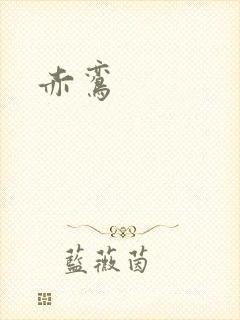 赤鸞
藍薇茵